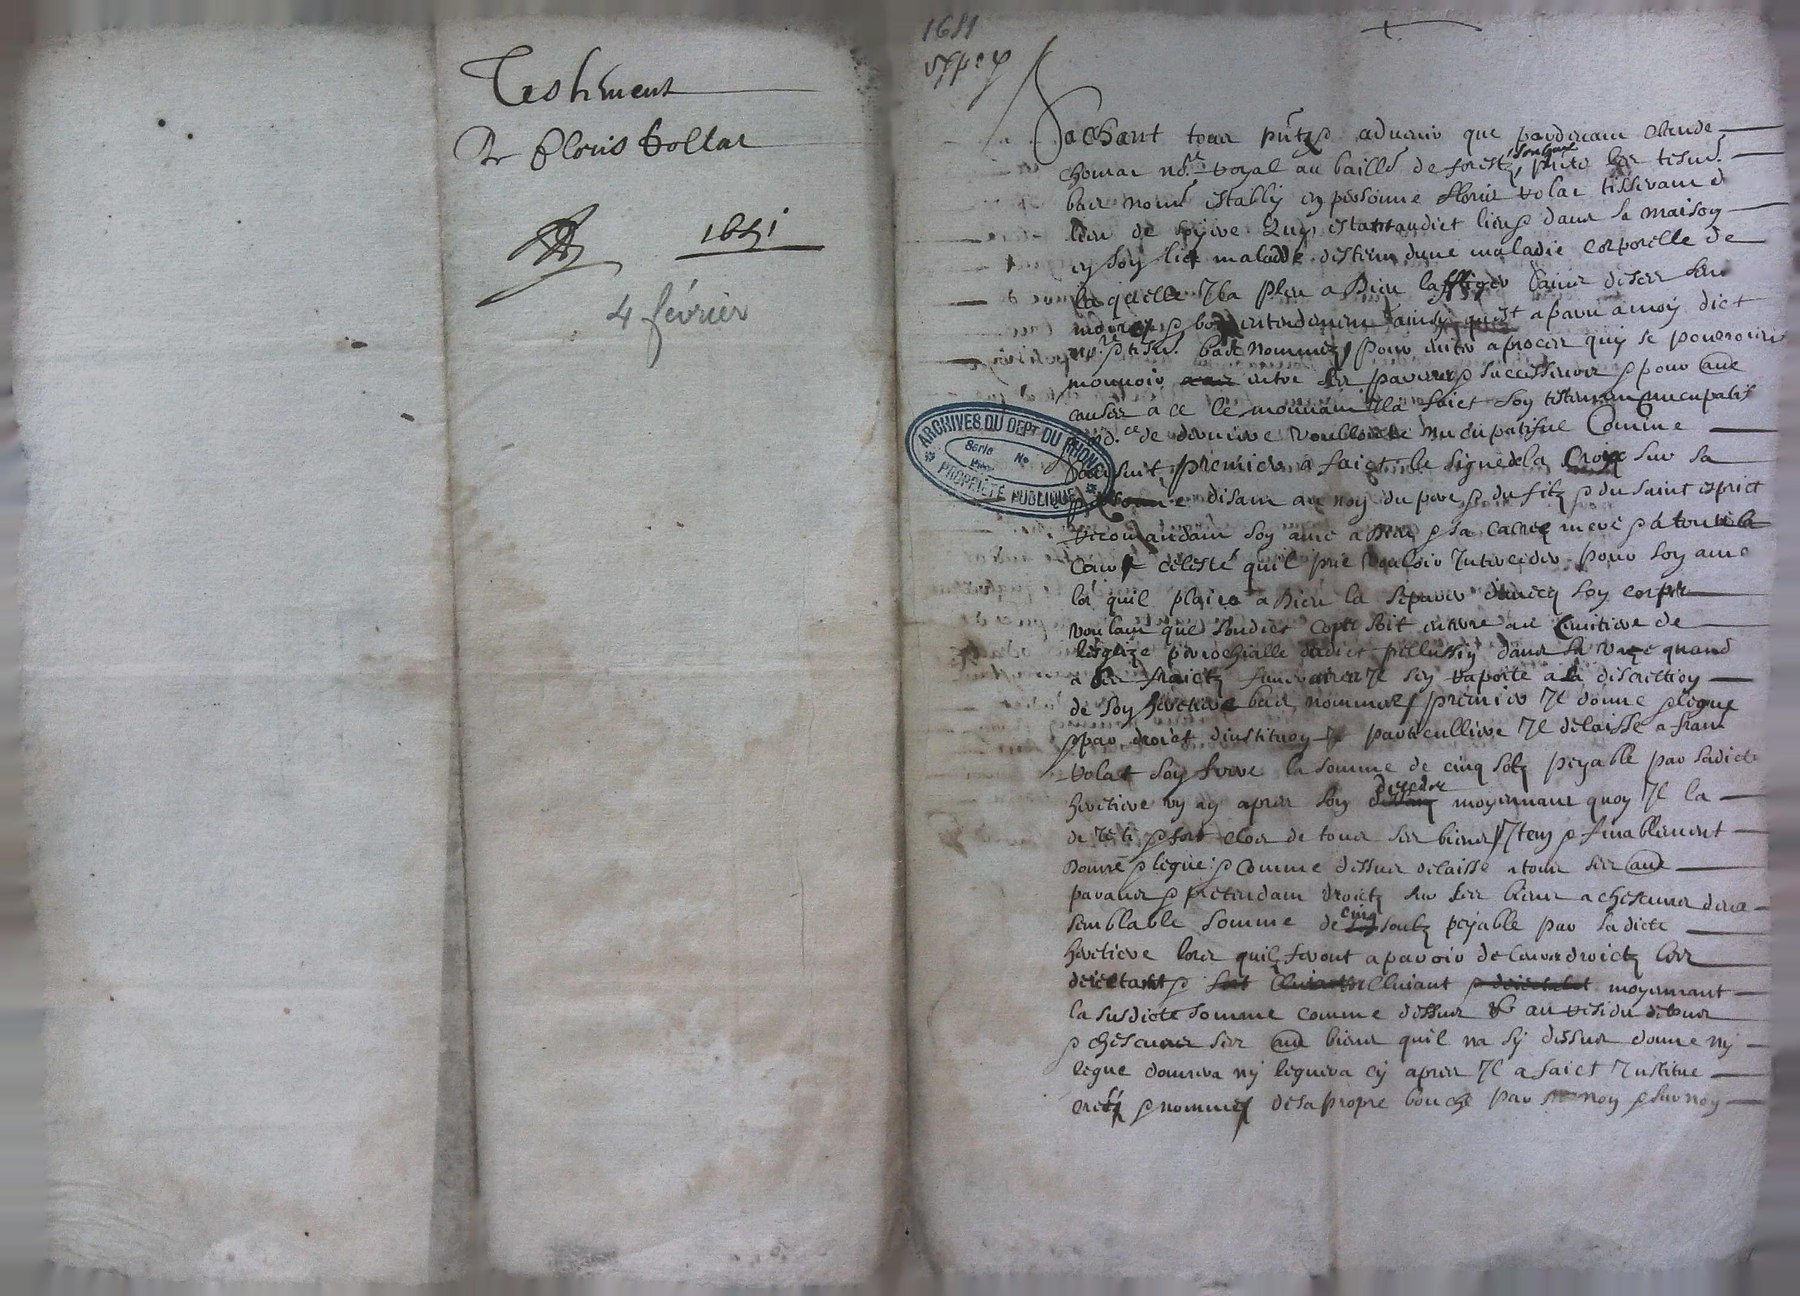 Testement
De Floris Vollat
1651
4 février
1651
Sachant tous pntz & advenir que pardevant Claude
Chomar no.re royal au baille de forestz soubzne pnte les tesm.
bas nome estably en personne Floris Volat tisserant d
lieu de estant audict lieu & dans sa maison
en son lict malade destenu dune maladie corporelle de
laquelle Il a pleu a Dieu laffliger sains de ses sen
memoyre & bon entendement ainsy quest aparu a moy dict
no.re & tesm. bas nommez pour eviter a proces quy se pourroient
mouvoir entre ses parens & successeurs & pour aue
causes a ce le mouvant Il a faict son testemant nuncupatif
de derniere nuncupatifue Comme
sensuit premier a faict le signe de la Croix sur sa
personne disant au nom du pere & du filz & du saint esprict
recomandant son ame a Dieu & sa sacree mere & a toute la
Cour celeste quil prie vouloir Interceder pour son ame
lors quil plaira a Dieu la separer davecq son corps
voulant que sondict corps soit enterre au semitiere de
lesglize parochialle dudict pellussin dans sa quand
a ses fraictz funeraires Il sen raporte a la discrettion
de son heretiere bas nommee premier Il donne & legue
& par droict dinstitution particulliere Il delaisse a
Volat son frere la somme de cinq solz peyable par sadicte
heretiere un an apres son decedz moyennant quoy Il la
de & fort clos de tous ses biens Item & finablement
Donne & legue & comme dessus delaisse a tous ses aue
parans & pretendant droictz sur ses biens a chescuns deux
semblable somme de cinq soulz peyable par sadicte
heretiere lors quilz feront aparoir de leurs droictz les
deiectant & moyennant
la susdicte somme comme dessus & au residu de tous
& chescuns ses aue biens quil na sy dessus donne ny
legue donnera ny leguera cy apres Il a faict Institue
cree & nomme de sa propre bouche par nom & surnom
ARCHIVES DU DEPT DU RHONE
Serie No
PROPRIÉTÉ PUBLIQUE